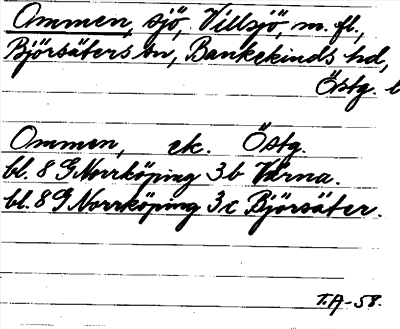 Ommen, sjö, Villsjö, m. fl.,
Björsäters sn, Bankekinds hd,
Östg. l
Ommen, ek. Östg.
bl. 8 G Norrköping 3b Värna.
bl. 8 G Norrköping 3c Björsäter.
T.A-58.